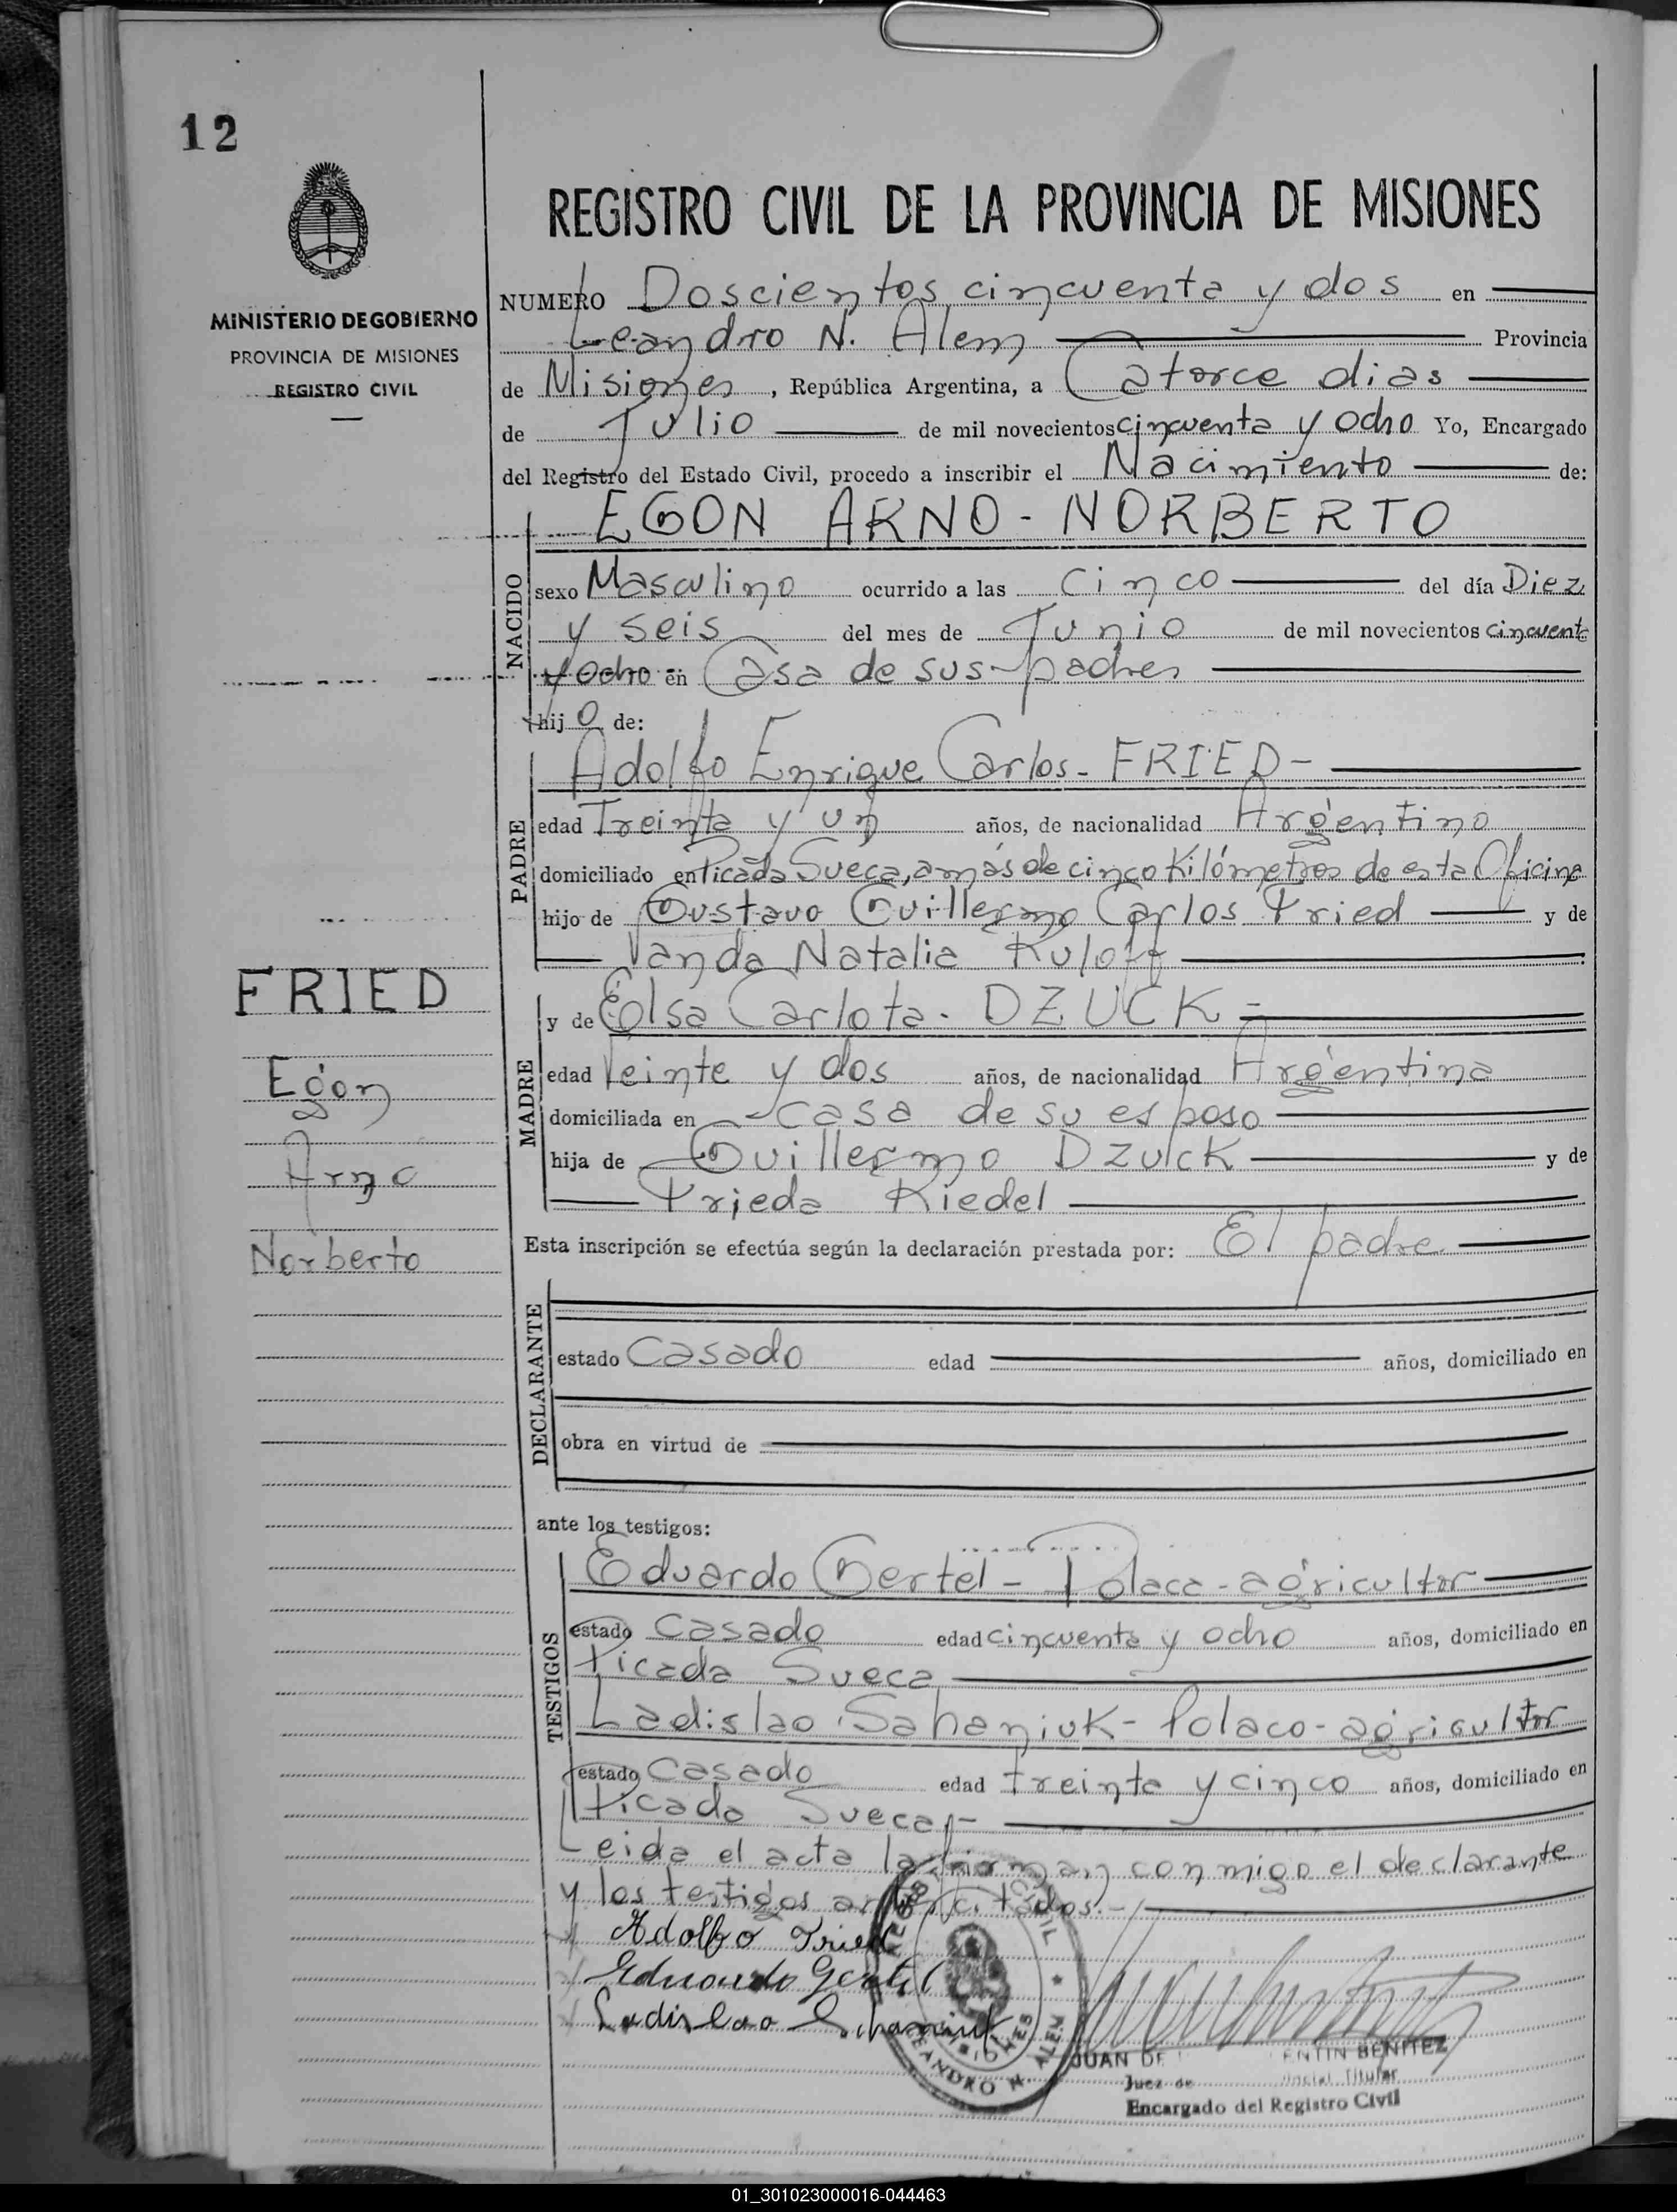 12
MINISTERIO DE GOBIERNO
PROVINCIA DE MISIONES
REGISTRO CIVIL
REGISTRO CIVIL DE LA PROVINCIA DE MISIONES
NUMERO Doscientos cincuenta y dos en
Leandro N. Alem Provincia
de Misiones, República Argentina, a Catorce dias
de Julio de mil novecientos cincuenta y ocho Yo, Encargado
del Registro del Estado Civil, procedo a inscribir el Nacimiento de:
NACIDO
EGON ARNO - NORBERTO
sexo Masculino ocurrido a las cinco del día Diez
y seis del mes de Junio de mil novecientos cincuenta
y ocho en Casa de sus padres
hijo de:
PADRE
Adolfo Enrique Carlos - FRIED -
edad Treinta y un años, de nacionalidad Argentino
domiciliado en Picada Sueca, a más de cinco Kilómetros de esta Oficina
hijo de Gustavo Guillermo Carlos Fried y de
Vanda Natalia Ruloff
MADRE
y de Elsa Carlota - DZUCK -
edad Veinte y dos años, de nacionalidad Argentina
domiciliada en casa de su esposo
hija de Guillermo Dzuck y de
Frieda Riedel
FRIED
Egon
Arno
Norberto
Esta inscripción se efectúa según la declaración prestada por: El padre
DECLARANTE
estado Casado edad años, domiciliado en
obra en virtud de
ante los testigos:
TESTIGOS
Eduardo Gertel - Polaca - agricultor
estado Casado edad cincuenta y ocho años, domiciliado en
Picada Sueca
Ladislao Sahaniuk - Polaco - agricultor
estado Casado edad treinta y cinco años, domiciliado en
Picada Sueca, -
Leida el acta la firman conmigo el declarante
y los testigos antes citados. -
Adolfo Fried
Eduardo Gertel
Ladislao
LEANDRO N. ALEM
JUAN DE ENTIN BENITEZ
Juez de Titular
Encargado del Registro Civil
01_301023000016-044463